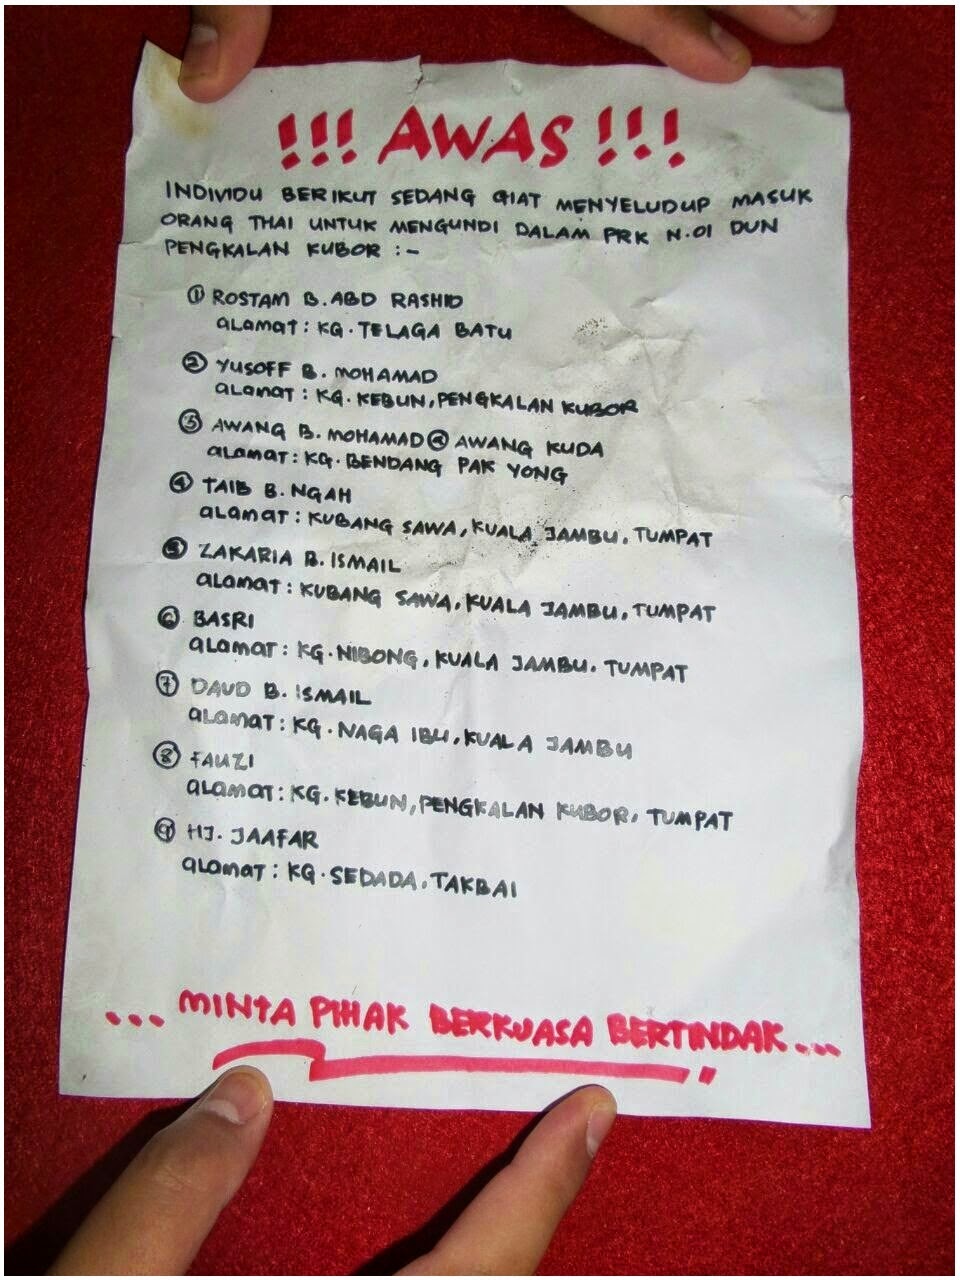 !!! AWAS !!!
INDIVIDU BERIKUT SEDANG GIAT MENYELUDUP MASUK
ORANG THAI UNTUK MENGUNDI DALAM PRK N.01 DUN
PENGKALAN KUBOR :-
① ROSTAM B. ABD RASHID
alamat : KG. TELAGA BATU
② YUSOFF B. MOHAMAD
alamat : KG. KEBUN, PENGKALAN KUBOR
③ AWANG B. MOHAMAD @ AWANG KUDA
alamat : KG. BENDANG PAK YONG
④ TAIB B. NGAH
alamat : KUBANG SAWA, KUALA JAMBU, TUMPAT
⑤ ZAKARIA B. ISMAIL
alamat : KUBANG SAWA, KUALA JAMBU, TUMPAT
⑥ BASRI
alamat : KG. NIBONG, KUALA JAMBU. TUMPAT
⑦ DAUD B. ISMAIL
alamat : KG. NAGA IBU, KUALA JAMBU
⑧ FAUZI
alamat : KG. KEBUN, PENGKALAN KUBOR, TUMPAT
⑨ HJ. JAAFAR
alamat : KG. SEDADA, TAKBAI
... MINTA PIHAK BERKUASA BERTINDAK ...